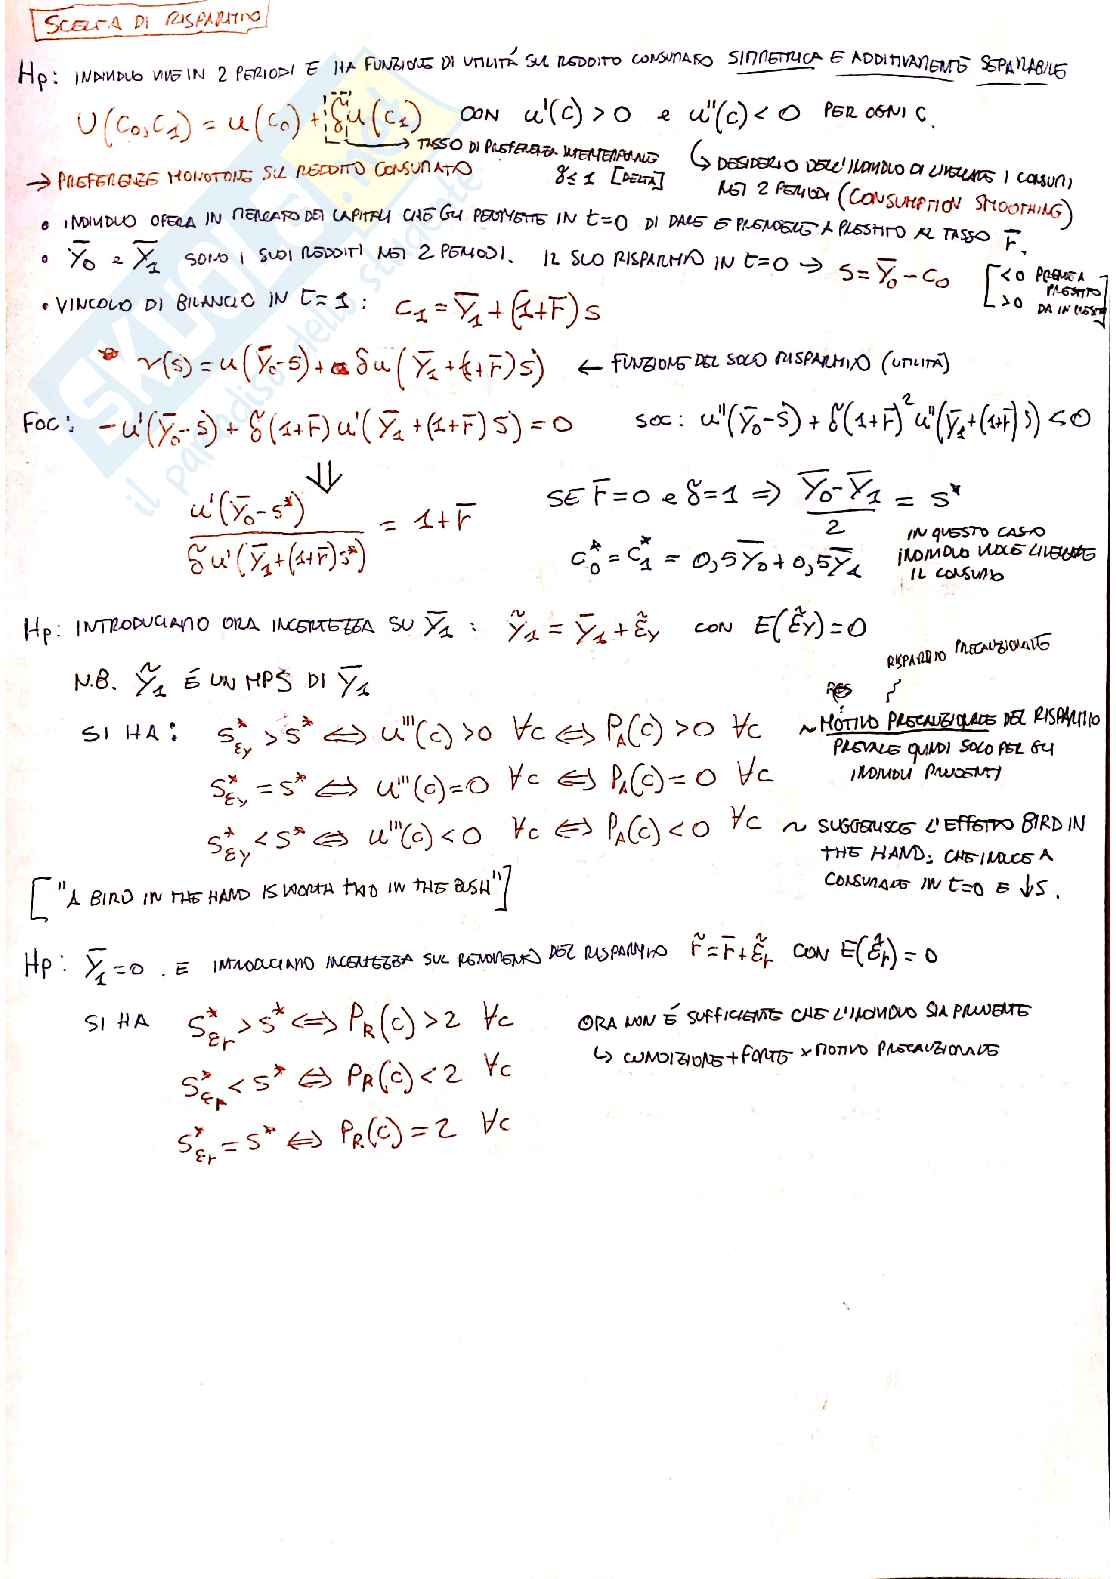 SCELTA DI RISPARMIO
Hp: INDIVIDUO VIVE IN 2 PERIODI E HA FUNZIONE DI UTILITÁ SUL REDDITO CONSUMATO SIMMETRICA E ADDITIVAMENTE SEPARABILE
U(C₀,C₁) = u(C₀) + δu(C₁) CON u'(C) > 0 e u''(C) < 0 PER OGNI C.
→ TASSO DI PREFERENZA INTERTEMPORALE δ ≤ 1 [DELTA]
↳ DESIDERIO DELL'INDIVIDUO DI LIVELLARE I CONSUMI NEI 2 PERIODI (CONSUMPTION SMOOTHING)
→ PREFERENZE MONOTONE SUL REDDITO CONSUMATO
• INDIVIDUO OPERA IN MERCATO DEI CAPITALI CHE GLI PERMETTE IN t=0 DI DARE E PRENDERE A PRESTITO AL TASSO r̅.
• Y̅₀ e Y̅₁ SONO I SUOI REDDITI NEI 2 PERIODI. IL SUO RISPARMIO IN t=0 → S = Y̅₀ - C₀ [<0 PRENDE A PRESTITO
>0 DA IN PRESTITO
• VINCOLO DI BILANCIO IN t=1: C₁ = Y̅₁ + (1+r̅)S
v(s) = u(Y̅₀-S) + δu(Y̅₁+(1+r̅)S) ← FUNZIONE DEL SOLO RISPARMIO (UTILITÀ)
FOC: -u'(Y̅₀-S) + δ(1+r̅)u'(Y̅₁+(1+r̅)S) = 0 SOC: u''(Y̅₀-S) + δ(1+r̅)²u''(Y̅₁+(1+r̅)S) < 0
⇓
u'(Y̅₀-S*) / δu'(Y̅₁+(1+r̅)S*) = 1+r̅
SE r̅=0 e δ=1 ⇒ (Y̅₀-Y̅₁)/2 = S*
C₀* = C₁* = 0,5Y̅₀ + 0,5Y̅₁
IN QUESTO CASO
INDIVIDUO VUOLE LIVELLARE
IL CONSUMO
Hp: INTRODUCIAMO ORA INCERTEZZA SU Y̅₁: Ỹ₁ = Y̅₁ + ε̃y CON E(ε̃y) = 0
N.B. Ỹ₁ É UN MPS DI Y̅₁
RISPARMIO PRECAUZIONALE
SI HA: S*εy > S* ⟺ u'''(C) > 0 ∀C ⟺ PA(C) > 0 ∀C
~ MOTIVO PRECAUZIONALE DEL RISPARMIO
PREVALE QUINDI SOLO PER GLI
INDIVIDUI PRUDENTI
S*εy = S* ⟺ u'''(C) = 0 ∀C ⟺ PA(C) = 0 ∀C
S*εy < S* ⟺ u'''(C) < 0 ∀C ⟺ PA(C) < 0 ∀C
~ SUGGERISCE L'EFFETTO BIRD IN
THE HAND: CHE INDUCE A
CONSUMARE IN t=0 E ↓S.
["A BIRD IN THE HAND IS WORTH TWO IN THE BUSH"]
Hp: Y̅₁=0. E INTRODUCIAMO INCERTEZZA SUL RENDIMENTO DEL RISPARMIO r̃ = r̅ + ε̃r CON E(ε̃r) = 0
SI HA S*εr > S* ⟺ PR(C) > 2 ∀C
ORA NON É SUFFICIENTE CHE L'INDIVIDUO SIA PRUDENTE
↳ CONDIZIONE + FORTE x MOTIVO PRECAUZIONALE
S*εr < S* ⟺ PR(C) < 2 ∀C
S*εr = S* ⟺ PR(C) = 2 ∀C